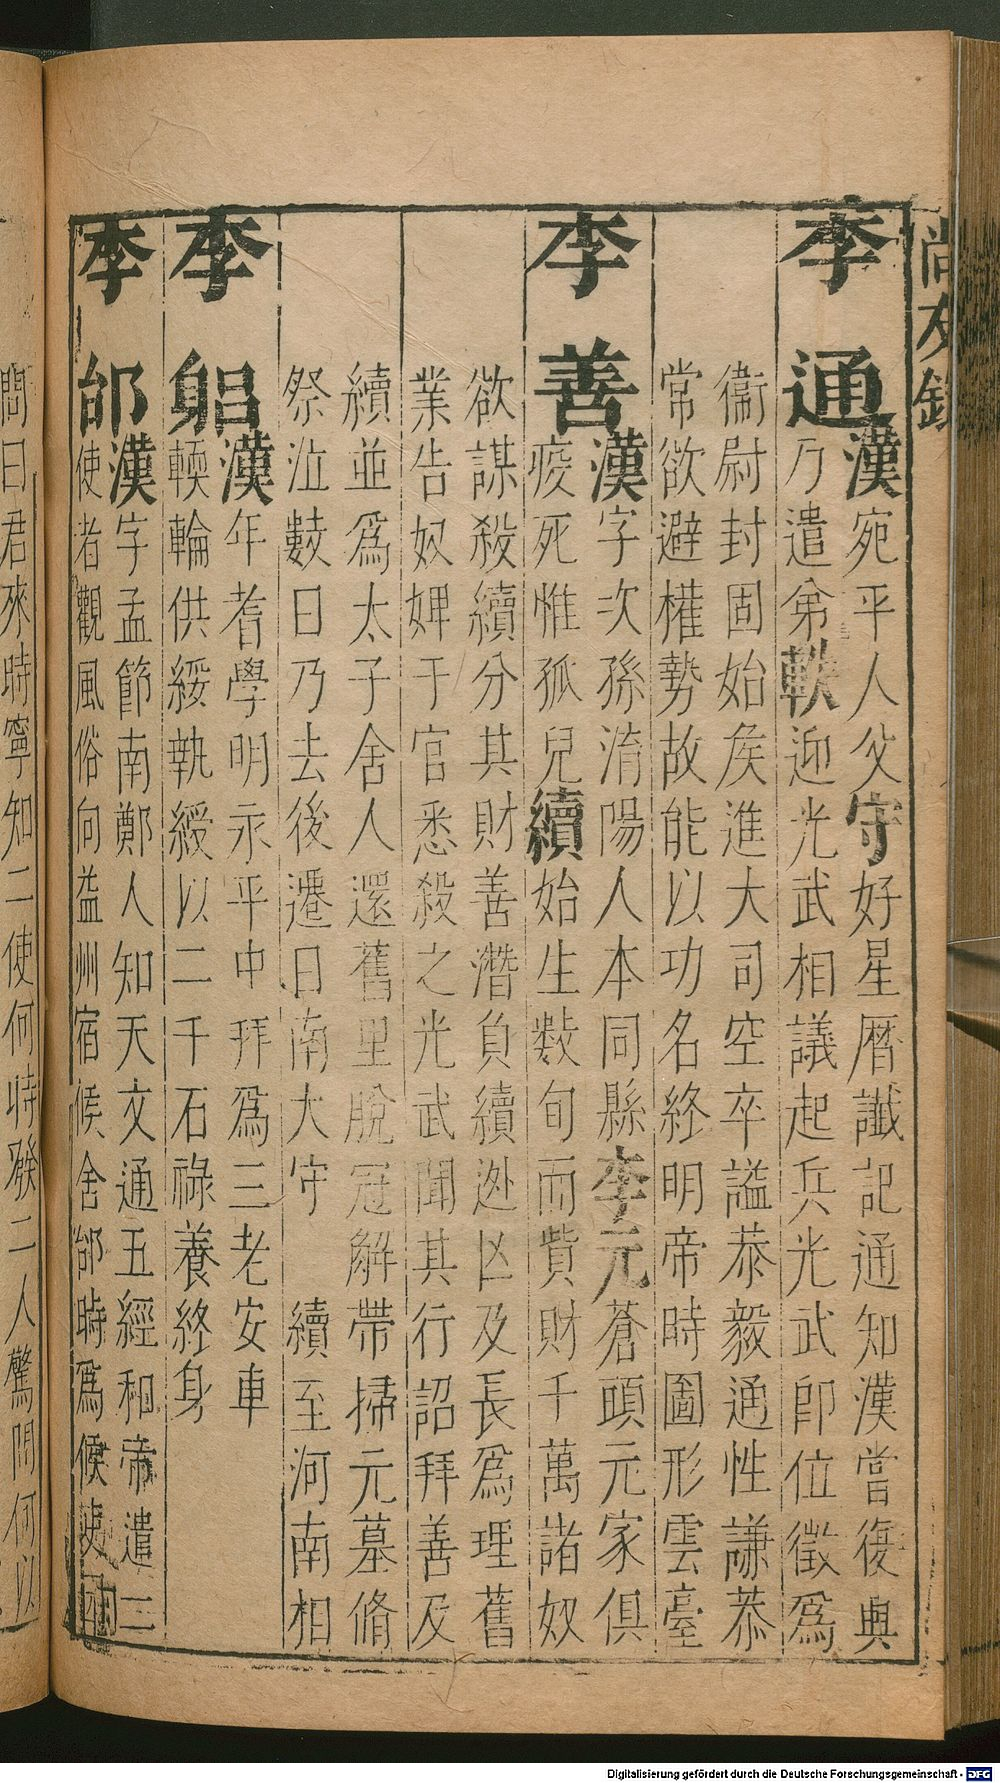 尚友錄
李通漢宛平人父守好星曆讖記通知漢當復興
乃遣弟軼迎光武相議起兵光武即位徵爲
衞尉封固始矦進大司空卒謚恭毅通性謙恭
常欲避權勢故能以功名終明帝時圖形雲臺
李善漢字次孫淯陽人本同縣李元蒼頭元家俱
疫死惟孤兒續始生數旬而貲財千萬諸奴
欲謀殺續分其財善潛負續迯匿及長爲理舊
業告奴婢于官悉殺之光武聞其行詔拜善及
續並爲太子舍人還舊里脫冠解帶掃元墓脩
祭泣數日乃去後遷日南大守　續至河南相
李躬漢年耆學明永平中拜爲三老安車
輭輪供綏執綬以二千石祿養終身
李郃漢字孟節南鄭人知天文通五經和帝遣二
使者觀風俗向益州宿候舍郃時爲候吏因
問曰君來時寧知二使何時發二人驚問何以
Digitalisierung gefördert durch die Deutsche Forschungsgemeinschaft - DFG